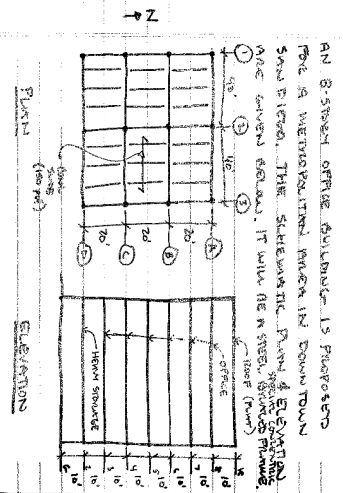 AN 8-STORY OFFICE BUILDING IS PROPOSED
FOR A METROPOLITAN AREA IN DOWNTOWN
SAN DIEGO. THE SCHEMATIC PLAN & ELEVATION
ARE GIVEN BELOW. IT WILL BE A STEEL SPECIAL CONCENTRIC BRACED FRAME.
N
1
2
3
40'
A
B
C
D
20'
20'
20'
PLAN
ELEVATION
ROOF (FLAT)
OFFICE
HEAVY STORAGE
10'
10'
10'
10'
10'
10'
10'
10'